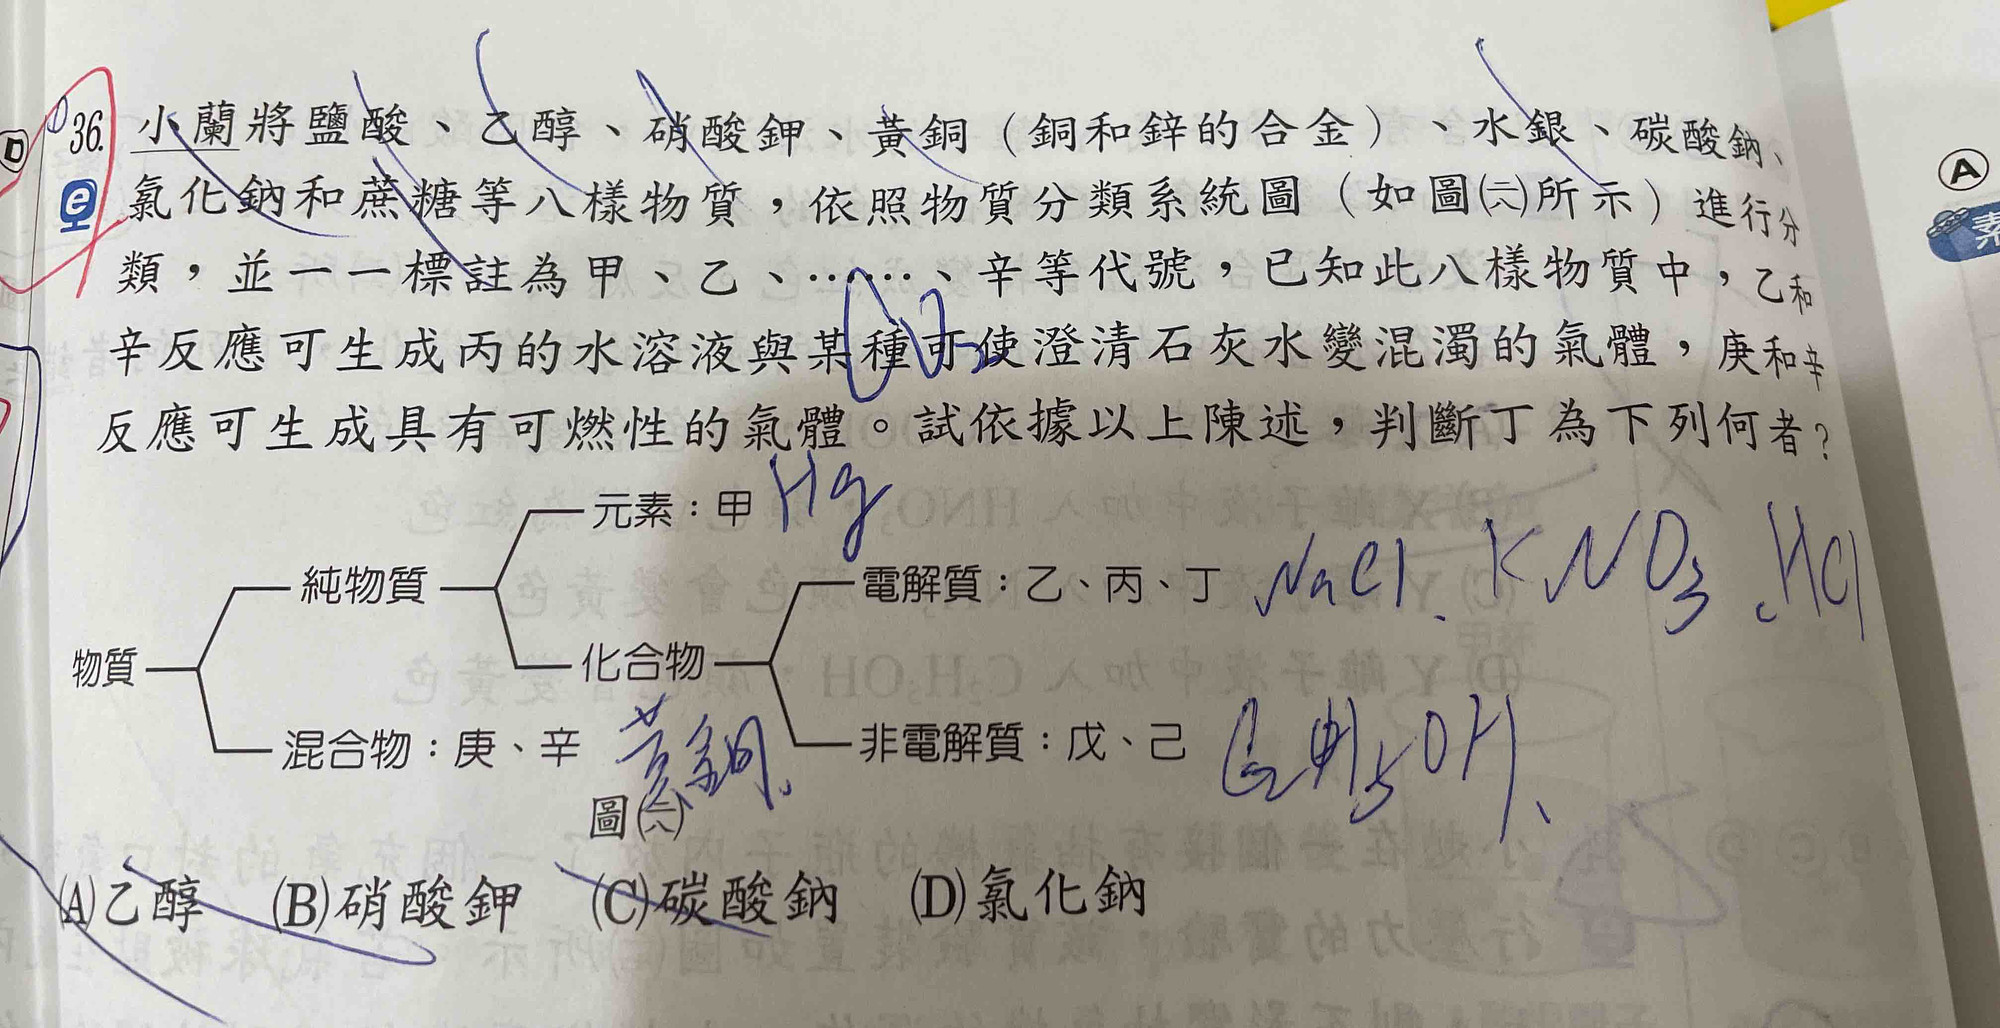 36. 小蘭將鹽酸、乙醇、硝酸鉀、黃銅（銅和鋅的合金）、水銀、碳酸鈉、
氯化鈉和蔗糖等八樣物質，依照物質分類系統圖（如圖㈥所示）進行分
類，並一一標註為甲、乙、……、辛等代號，已知此八樣物質中，乙和
辛反應可生成丙的水溶液與某種可使澄清石灰水變混濁的氣體，庚和辛
反應可生成具有可燃性的氣體。試依據以上陳述，判斷丁為下列何者？
元素：甲 Hg
純物質
電解質：乙、丙、丁 NaCl、KNO₃、HCl
物質
化合物
混合物：庚、辛 黃銅、
非電解質：戊、己 C₂H₅OH、
(A)乙醇 (B)硝酸鉀 (C)碳酸鈉 (D)氯化鈉
D
A
素